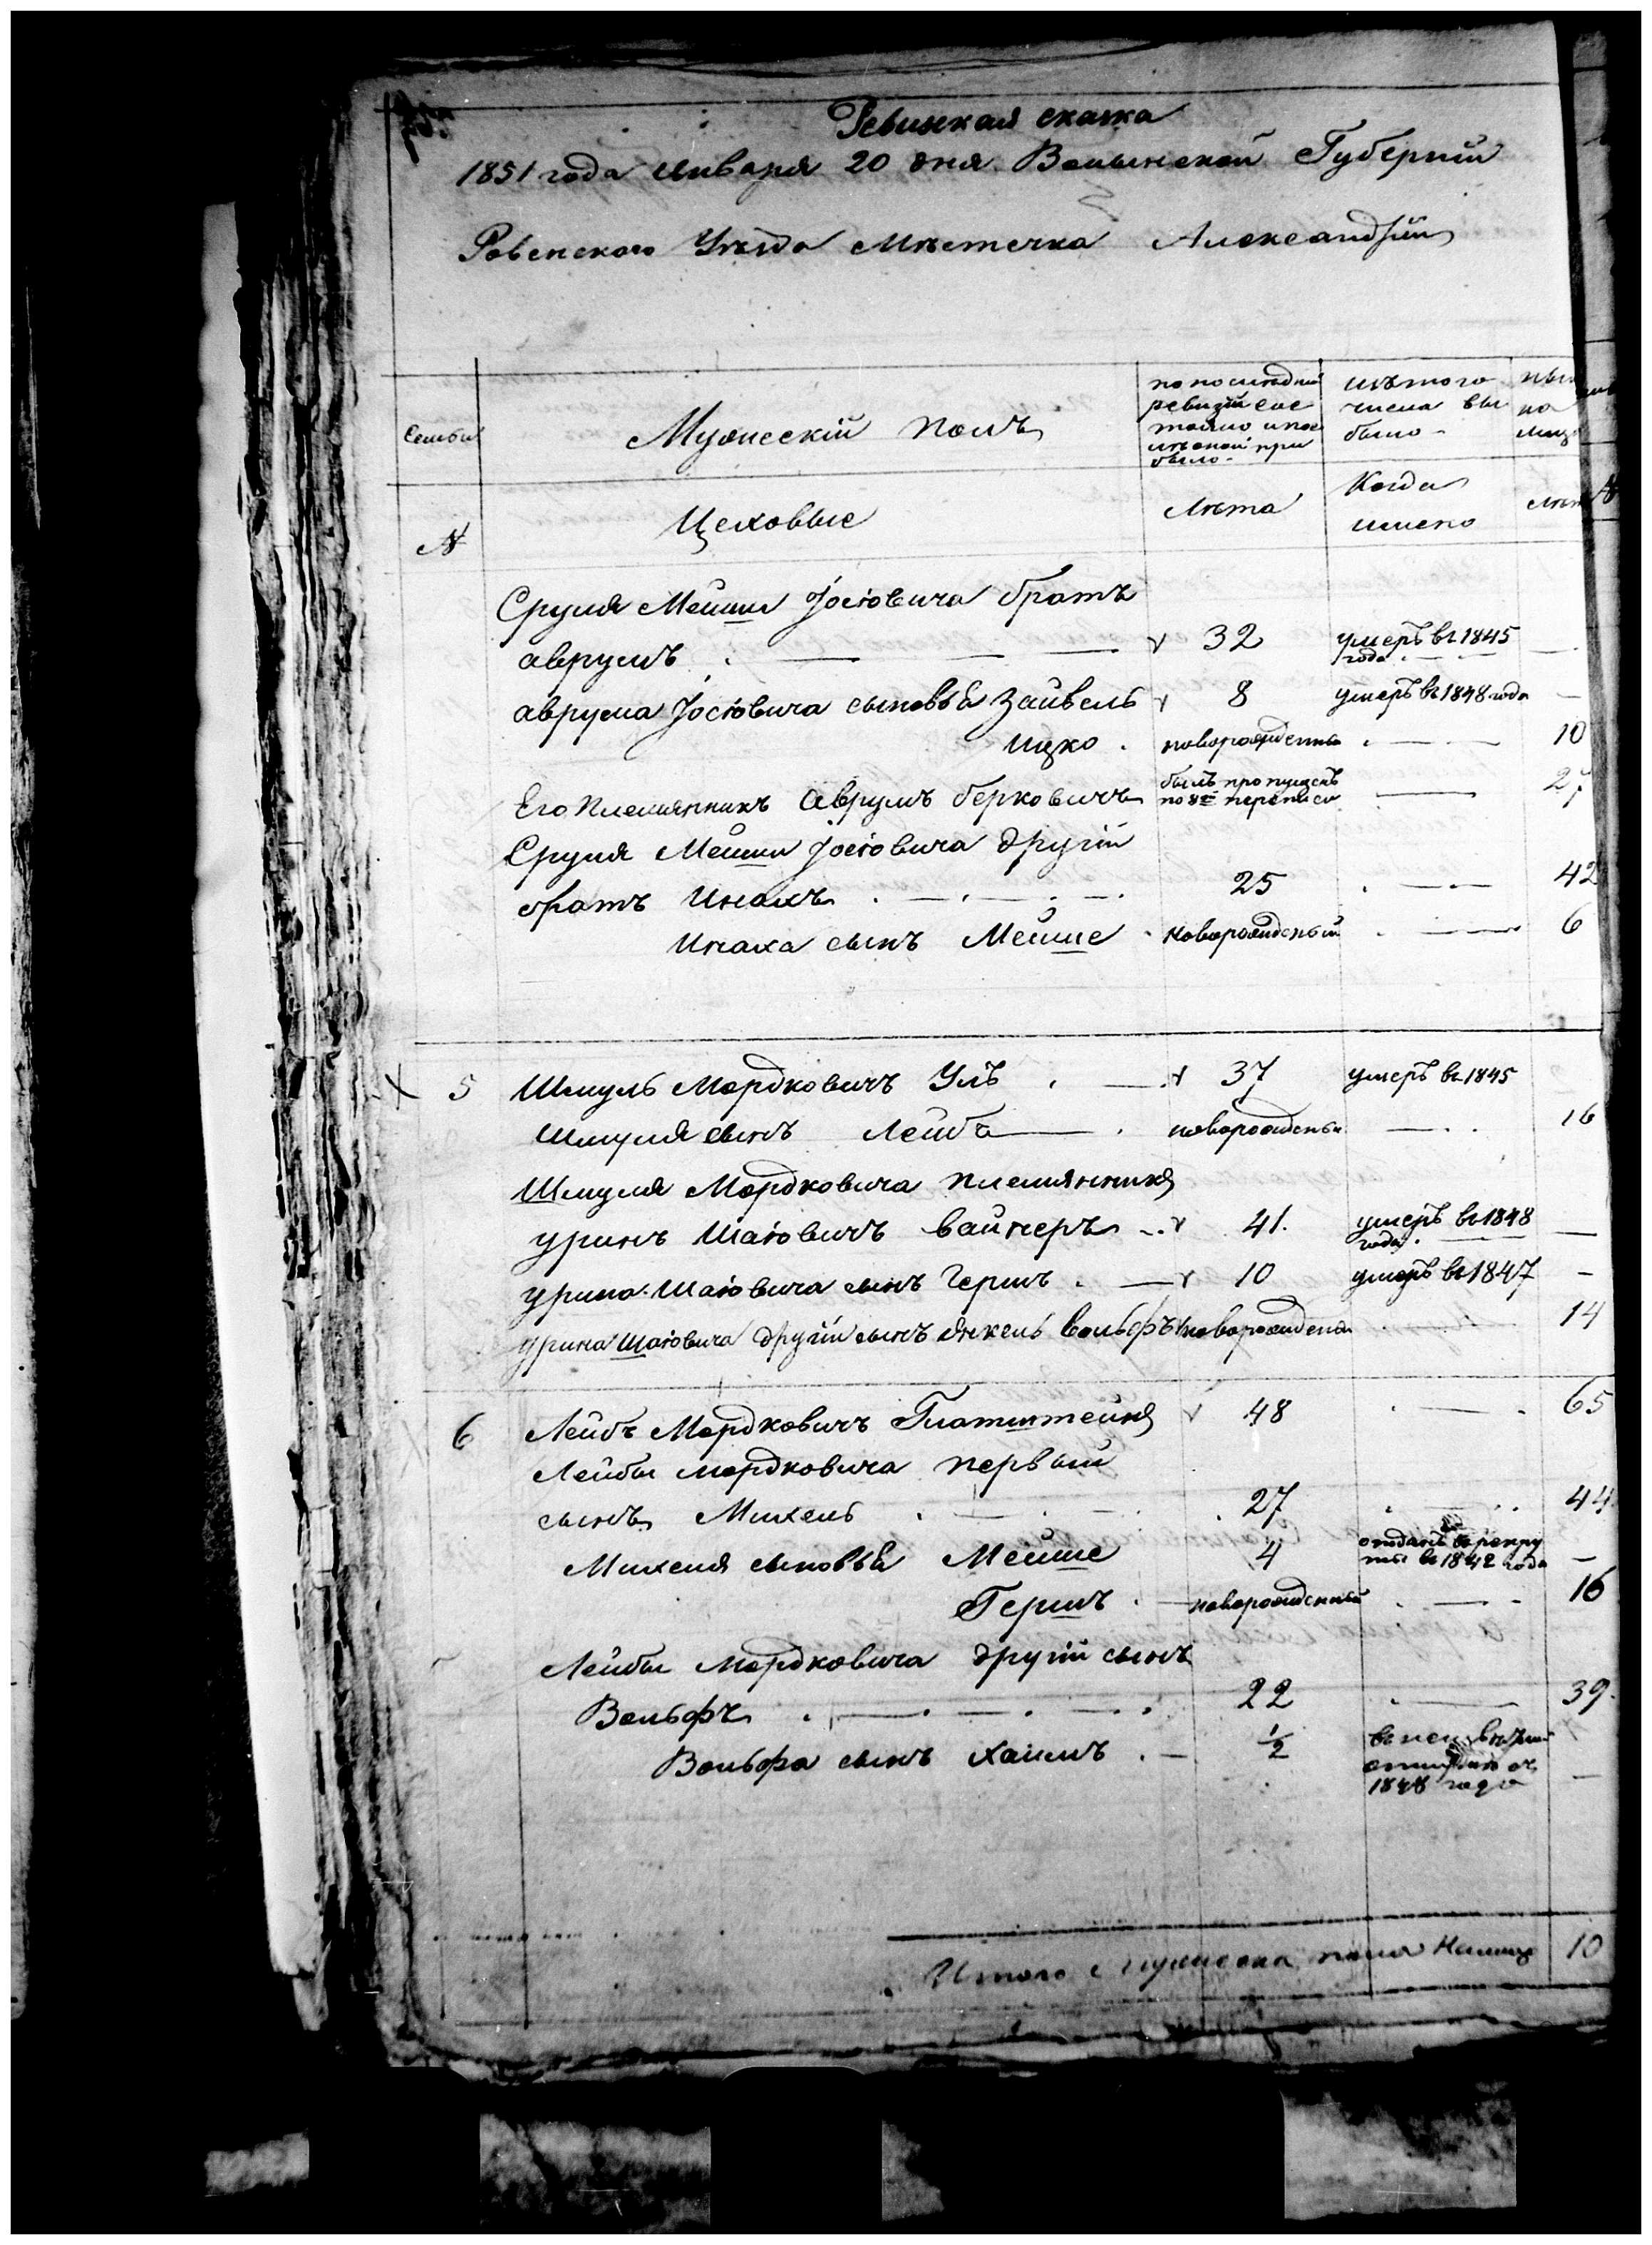 Ревизкая скажа
1851 года января 20 дня Волынской Губернии
Ровенского Уѣзда Мѣстечка Александріи
Семьи
Мужескій полъ
по последней
ревизіи сос
тояло и пос
лѣ оной при
было
изъ того
числа вы
было
ны
на
лицо
№
Цеховые
Лѣта
Когда
имено
лѣт
Сруля Мейши Іосіовича братъ
аврумъ 32 умеръ въ 1845
года
аврума Іосіовича сыновья Зайвель 8 умеръ въ 1848 года
Ицко новорожденны 10
Его Племянникъ аврумъ берковичъ былъ пропущенъ 27
по 8й переписи
Сруля Мейши Іосіовича другій
братъ Инахъ 25 42
Инаха сынъ Мейше новорожденый 6
5 Шмуль Мордковичъ Улъ 37 умеръ въ 1845
Шмуля сынъ Лейба новорожденны 16
Шмуля Мордковича племянникъ
уринъ Шаіовичъ вайнеръ 41. умеръ въ 1848
года
урина Шаіовича сынъ Гершъ 10 умеръ въ 1847
урина Шаіовича другій сынъ Янкель вольфъ новорожден 14
6 Лейбъ Мордковичъ Глатштейнъ 48 65
Лейбы мордковича первый
сынъ Михель 27 44
Михеля сыновья Мейше 4 отданъ въ рекру
ты въ 1842 года
Гершъ новорожденный 16
Лейбы Мордковича другій сынъ
Вольфъ 22 39.
Вольфа сынъ Хаимъ 1/2
1848 года
Итого мужеска пола На лицо 10